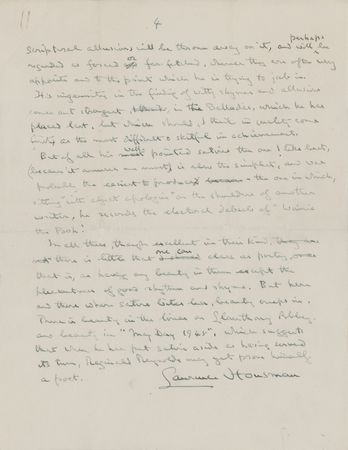 11
4
scriptural allusions will be thrown away on it, and will perhaps be
regarded as forced or far fetched, whereas they are often very
apposite and to the point which he is trying to jab in.
His ingenuity in the finding of witty rhymes and allusions
comes out strongest, I think, in the Ballades, which he has
placed last, but which should, I think, in
as the most difficult & skilful in achievement.
But of all his well pointed satires the one I like best,
(because it amuses me most) is also the simplest, and was
probably the easiest to produce – the one in which,
sitting "with abject apologies" on the shoulders of another
writer, he records the electoral debacle of "Winnie
the Pooh".
In all these, though excellent in their kind,
there is little that one can class as poetry,
that is, as having any beauty in them except the
pleasantness of good rhythm and rhyme. But here
and there where satire bites less, beauty creeps in.
There is beauty in the lines on Glastonbury Abbey,
and beauty in "May Day 1945", which suggests
that when he has put satire aside as having served
its turn, Reginald Reynolds may yet prove himself
a poet.
Laurence Housman